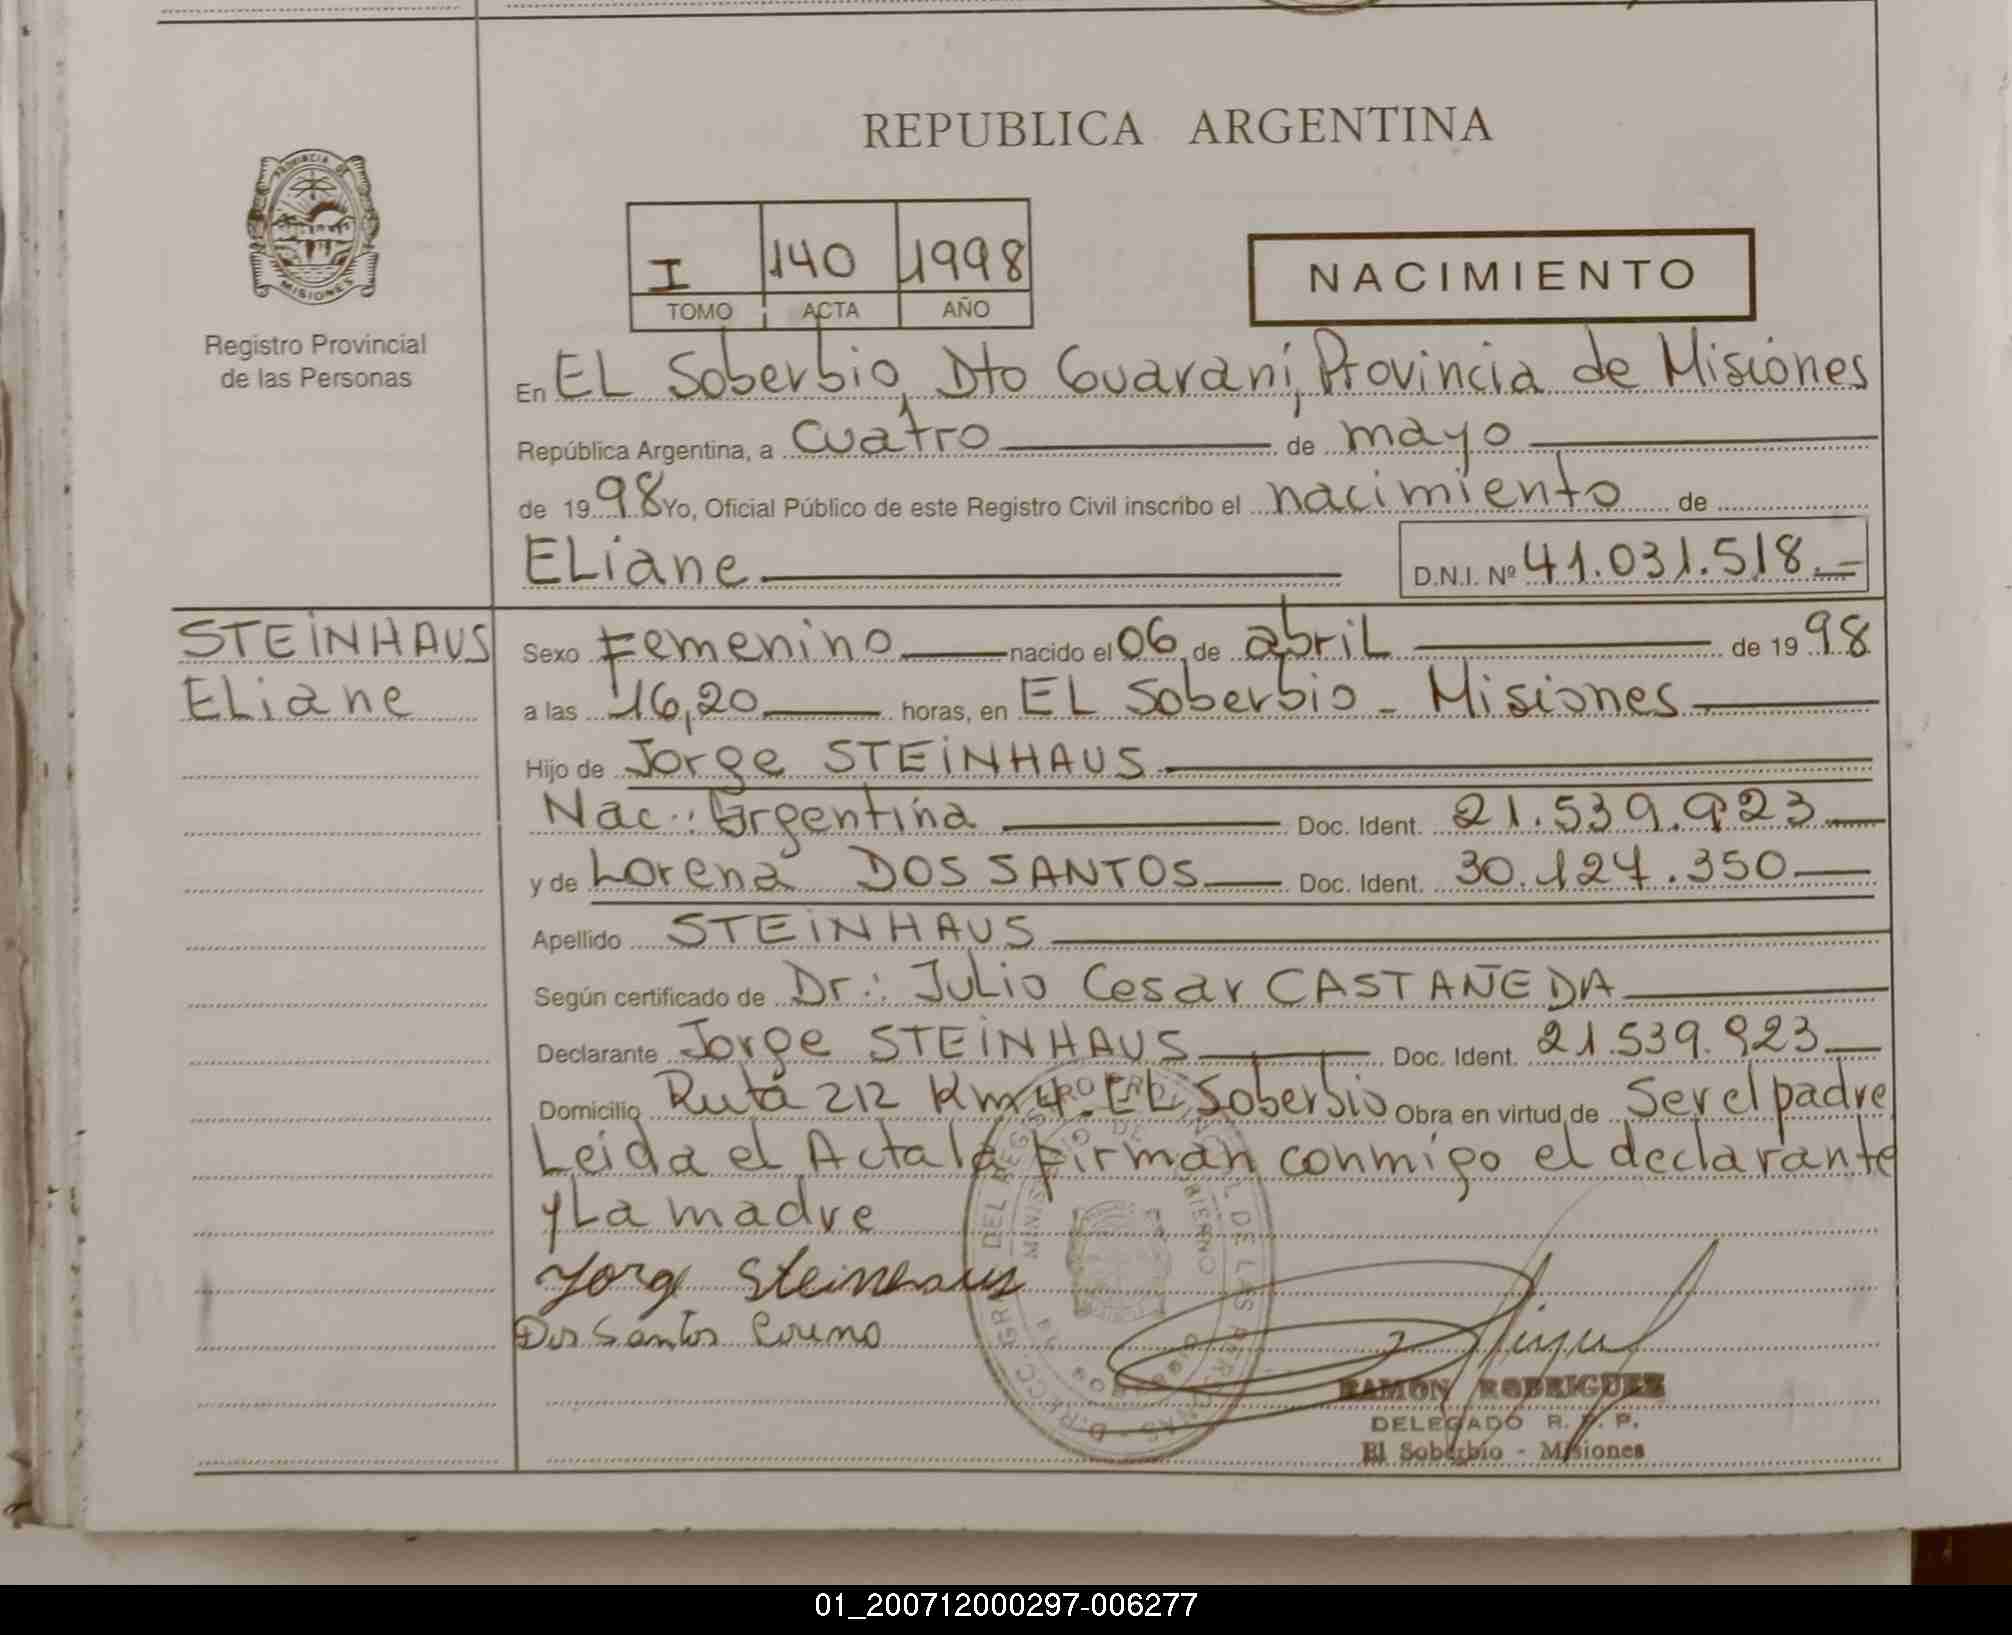 REPUBLICA ARGENTINA
PROVINCIA DE
MISIONES
Registro Provincial
de las Personas
I 140 1998
TOMO ACTA AÑO
NACIMIENTO
En EL Soberbio, Dto Guaraní, Provincia de Misiones
República Argentina, a cuatro de mayo
de 1998 Yo, Oficial Público de este Registro Civil inscribo el nacimiento de
ELiane D.N.I. Nº 41.031.518.-
STEINHAUS
ELiane
Sexo Femenino nacido el 06 de abriL de 1998
a las 16,20 horas, en EL Soberbio - Misiones
Hijo de Jorge STEINHAUS
Nac.: Argentina Doc. Ident. 21.539.923
y de Lorena DOS SANTOS Doc. Ident. 30.127.350
Apellido STEINHAUS
Según certificado de Dr.: Julio Cesar CASTAÑEDA
Declarante Jorge STEINHAUS Doc. Ident. 21.539.923
Domicilio Ruta 212 Km 4. EL Soberbio Obra en virtud de Ser el padre
Leida el Acta la firman conmigo el declarante
y La madre
Jorge Steinhaus
Dos Santos Lorena
RAMON RODRIGUEZ
DELEGADO R. P. P.
El Soberbio - Misiones
01_200712000297-006277